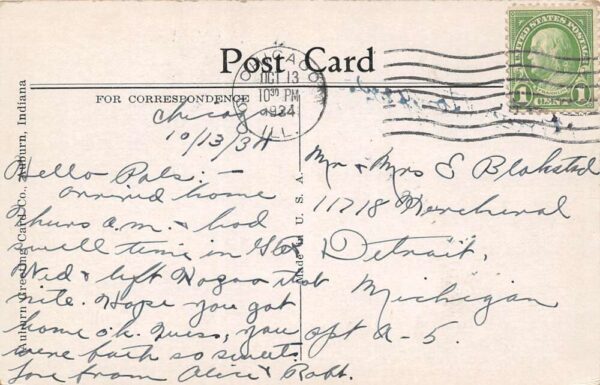 Post Card
FOR CORRESPONDENCE
CHICAGO
OCT 13
10 30 PM
1934
ILL.
UNITED STATES POSTAGE
1 CENT 1
Auburn Greeting Card Co., Auburn, Indiana
Made in U. S. A.
Chicago
10/13/34
Hello Pals: —
arrived home
Thurs a.m. & had
swell time in
Wed & left that
nite. Hope you got
home o.k. Guess, you
were both so sweet.
Love from Alice & Robt.
Mr & Mrs E Blokstad
11718 Kercheval
Detroit,
Michigan
apt A-5.